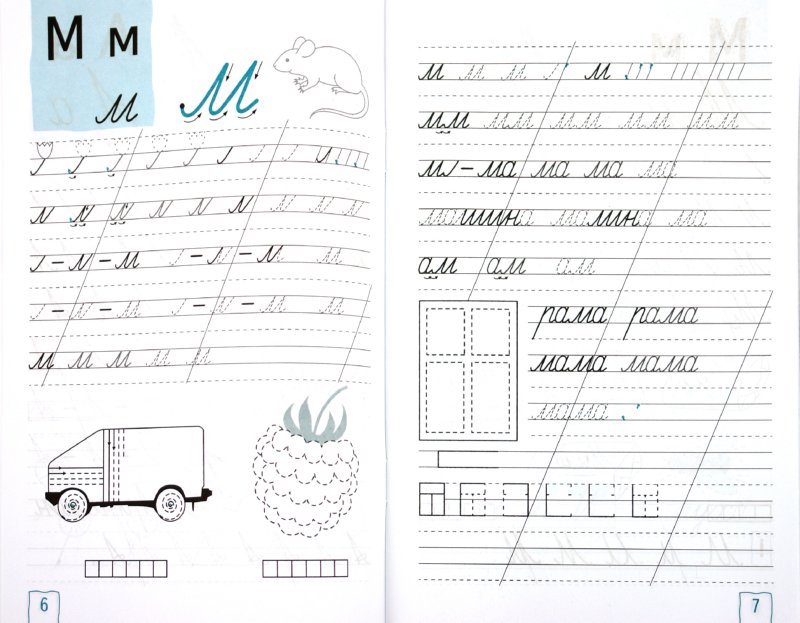 М м
м
м м м м м
6
м м м м
мм мм мм мм мм
м – ма ма ма ма
машина машина ма
ам ам ам
рама рама
мама мама
мама
7